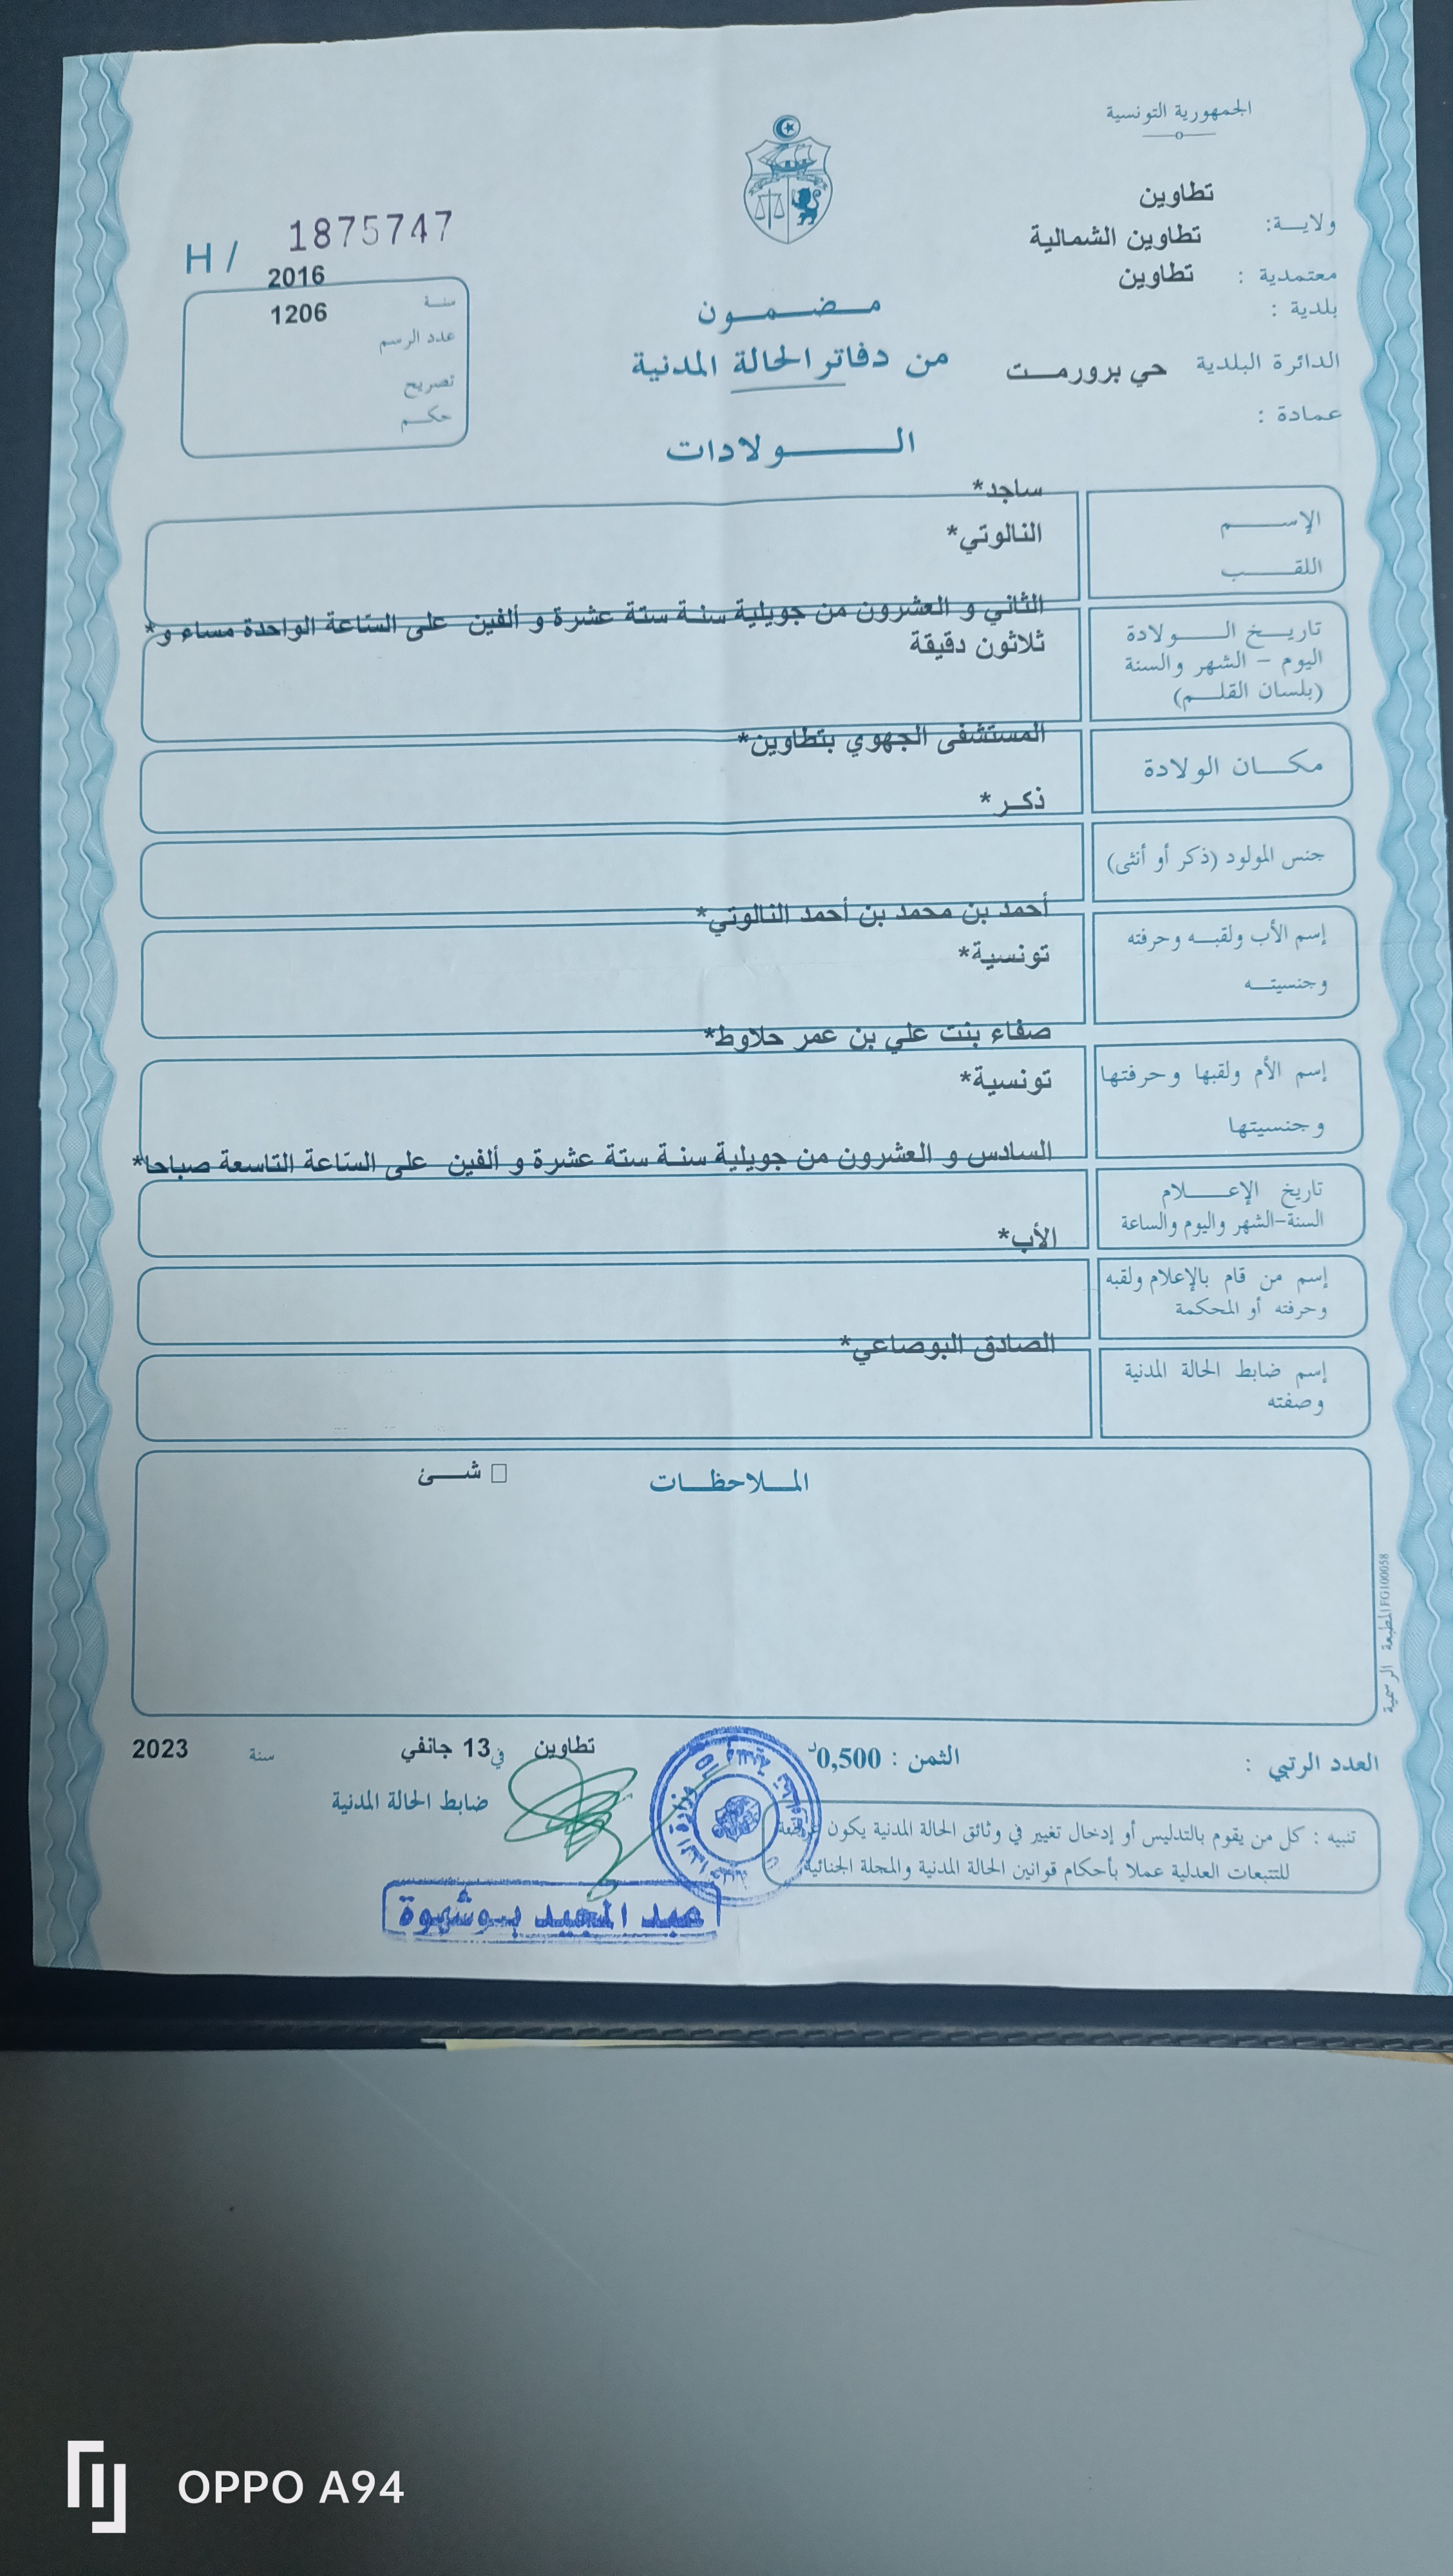 الجمهورية التونسية
ولايـــة: تطاوين
معتمدية : تطاوين الشمالية
بلدية : تطاوين
الدائرة البلدية حي برورمـــت
عمادة :
H / 1875747
سنــة 2016
عدد الرسم 1206
تصريح
حكــم
مــضــمــون
من دفاتر الحالة المدنية
الــــولادات
الإســـــم ساجد*
اللقـــــب النالوتي*
تاريــخ الـــولادة
اليوم – الشهر والسنة
(بلسان القلـــم)
الثاني و العشرون من جويلية سنة ستة عشرة و ألفين على السّاعة الواحدة مساء و*
ثلاثون دقيقة
مكـــان الولادة
المستشفى الجهوي بتطاوين*
جنس المولود (ذكر أو أنثى)
ذكـر *
إسم الأب ولقبــه وحرفته
وجنسيتــه
أحمد بن محمد بن أحمد النالوتي*
تونسية*
إسم الأم ولقبها وحرفتها
وجنسيتها
صفاء بنت علي بن عمر حلاوط*
تونسية*
تاريخ الإعــــلام
السنة-الشهر واليوم والساعة
السادس و العشرون من جويلية سنة ستة عشرة و ألفين على السّاعة التاسعة صباحا*
إسم من قام بالإعلام ولقبه
وحرفته أو المحكمة
الأب*
إسم ضابط الحالة المدنية
وصفته
الصادق البوصاعي*
المــلاحظــات
□ شـــئ
المطبعة الرسمية FG100058
العدد الرتبي :
الثمن : 0,500د
تطاوين في 13 جانفي سنة 2023
ضابط الحالة المدنية
تنبيه : كل من يقوم بالتدليس أو إدخال تغيير في وثائق الحالة المدنية يكون عرضة
للتتبعات العدلية عملا بأحكام قوانين الحالة المدنية والمجلة الجنائية
عبد المجيد بــوشهوة
OPPO A94